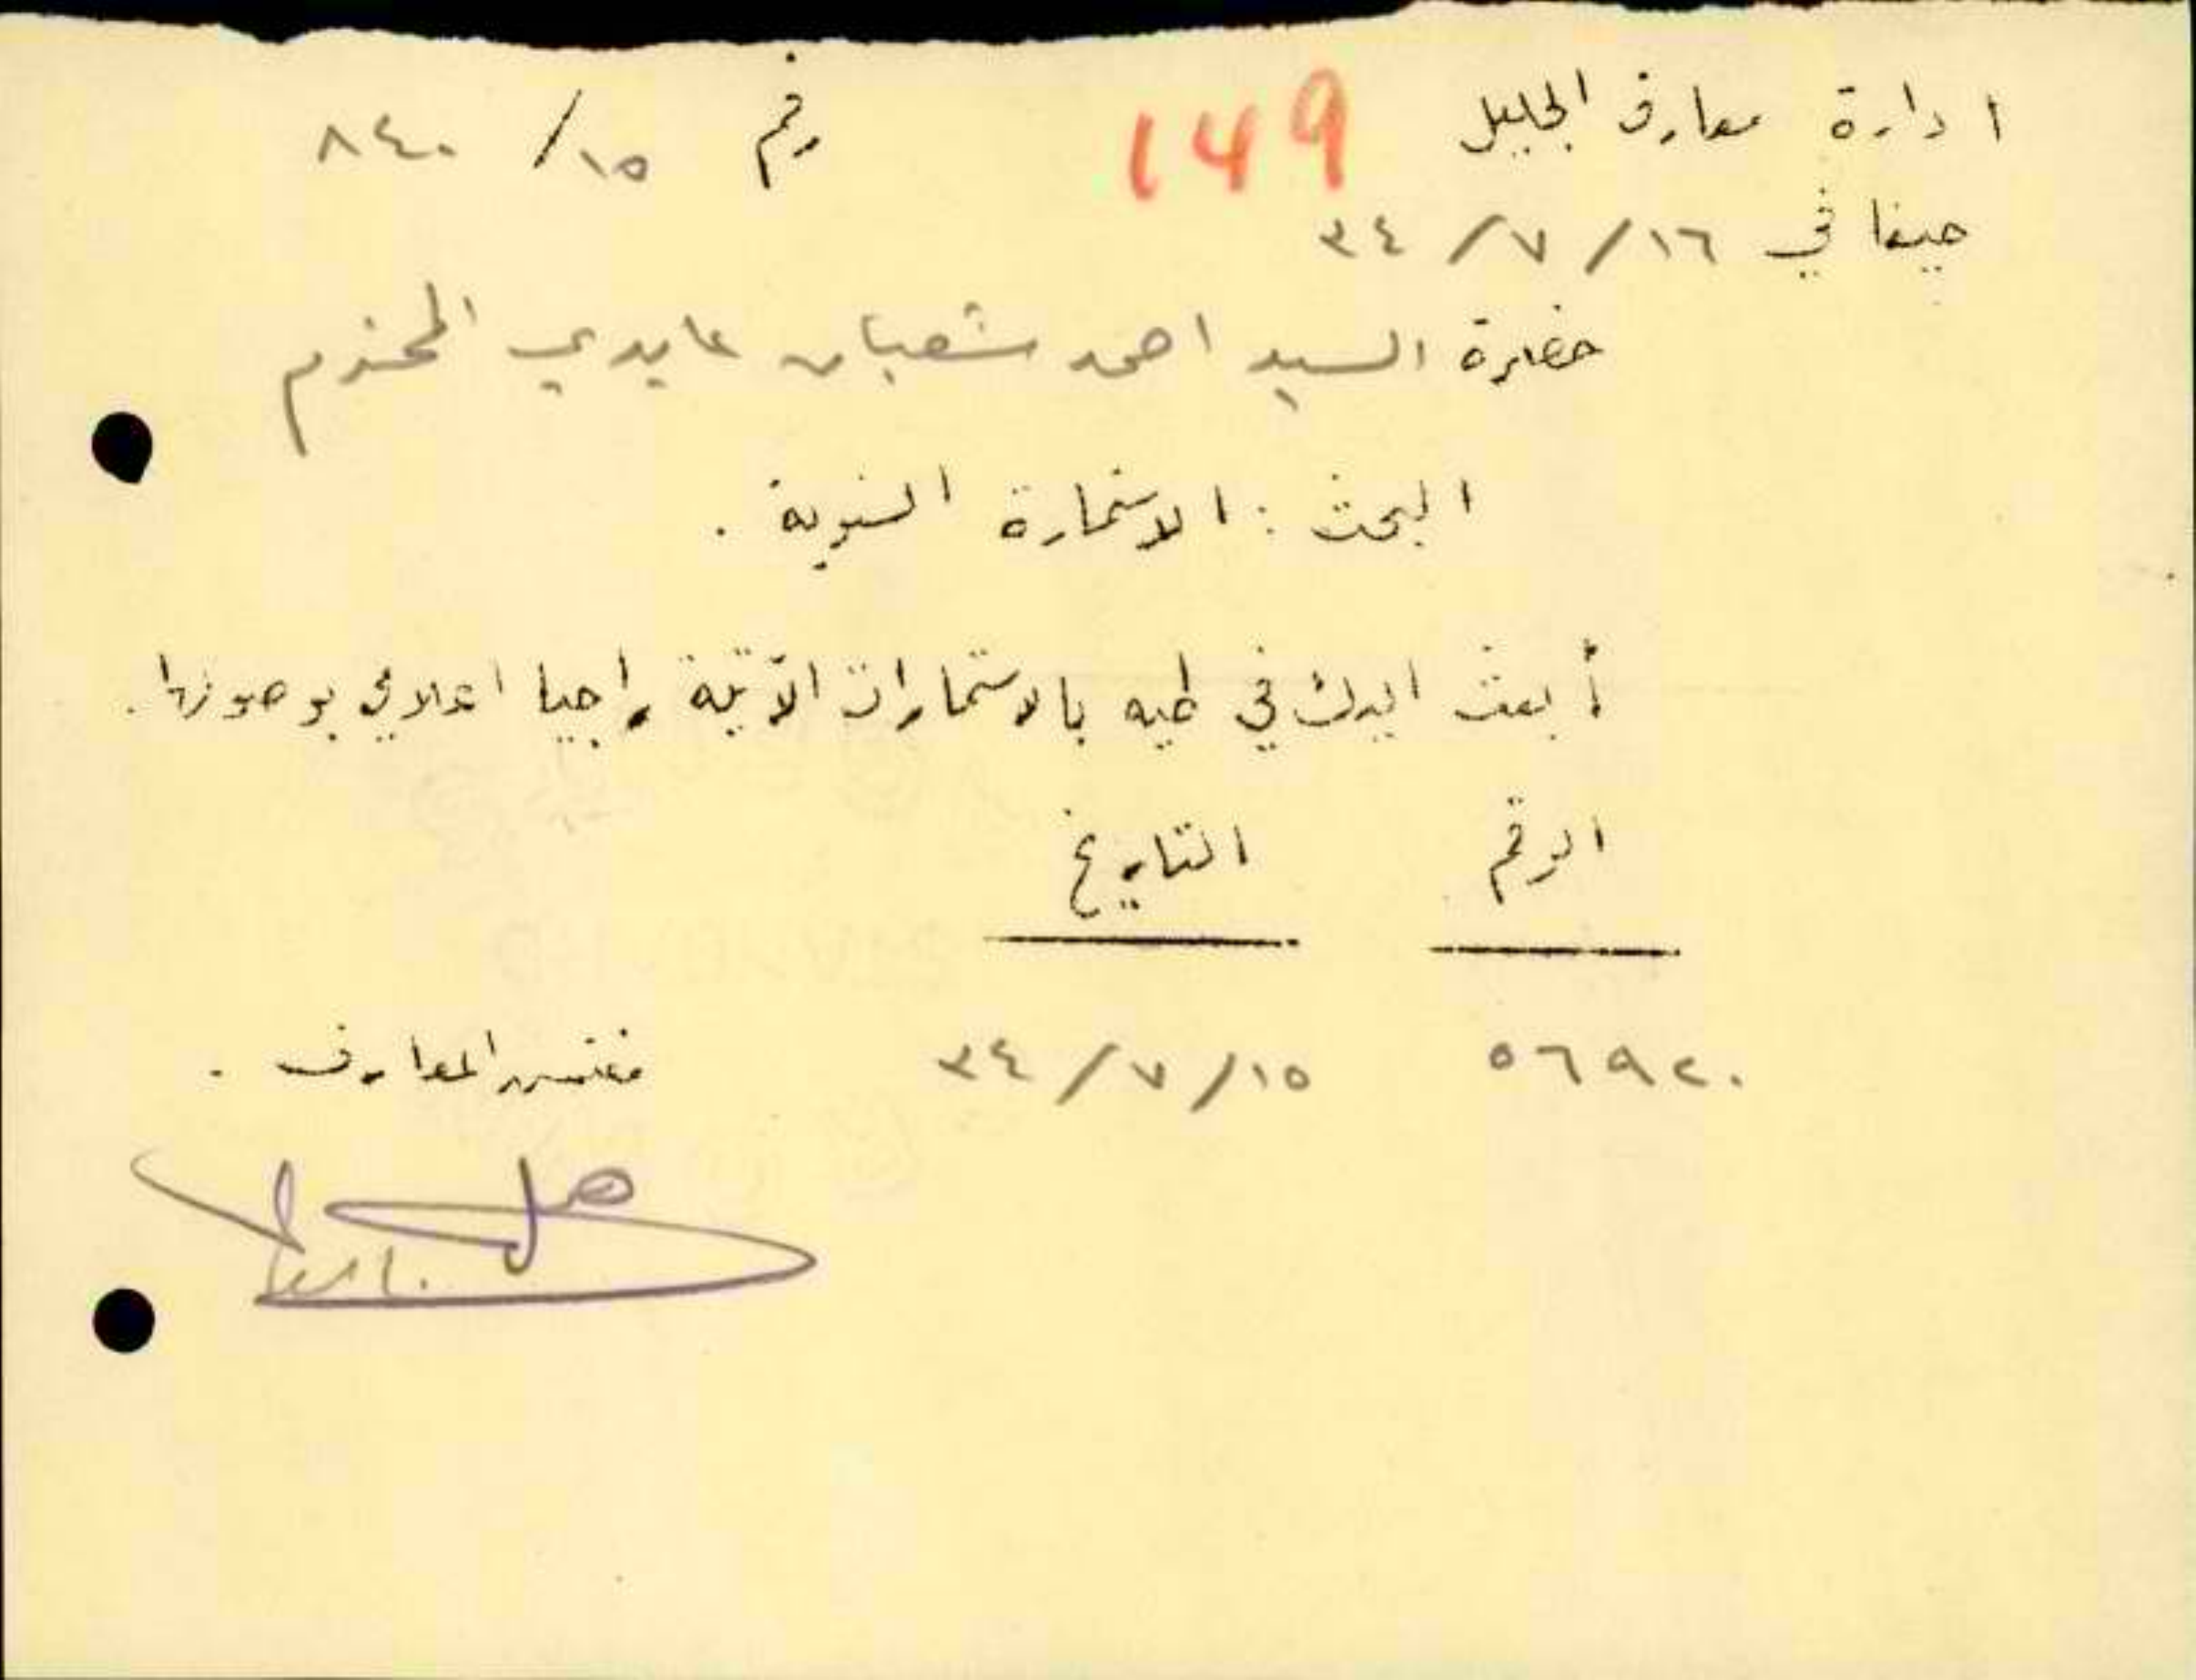 ادارة معارف الجليل 149 رقم ١٥/ ٨٤٠
حيفا في ١٦/ ٧/ ٣٤
حضرة السيد احمد شعبان عايدي المحترم
البحث : الاستمارة السنوية .
أبعث اليك في طيه بالاستمارات الآتية راجيا اعلامي بوصولها .
الرقم التاريخ
٥٦٩٢٠ ١٥/ ٧/ ٣٤ مفتش المعارف .